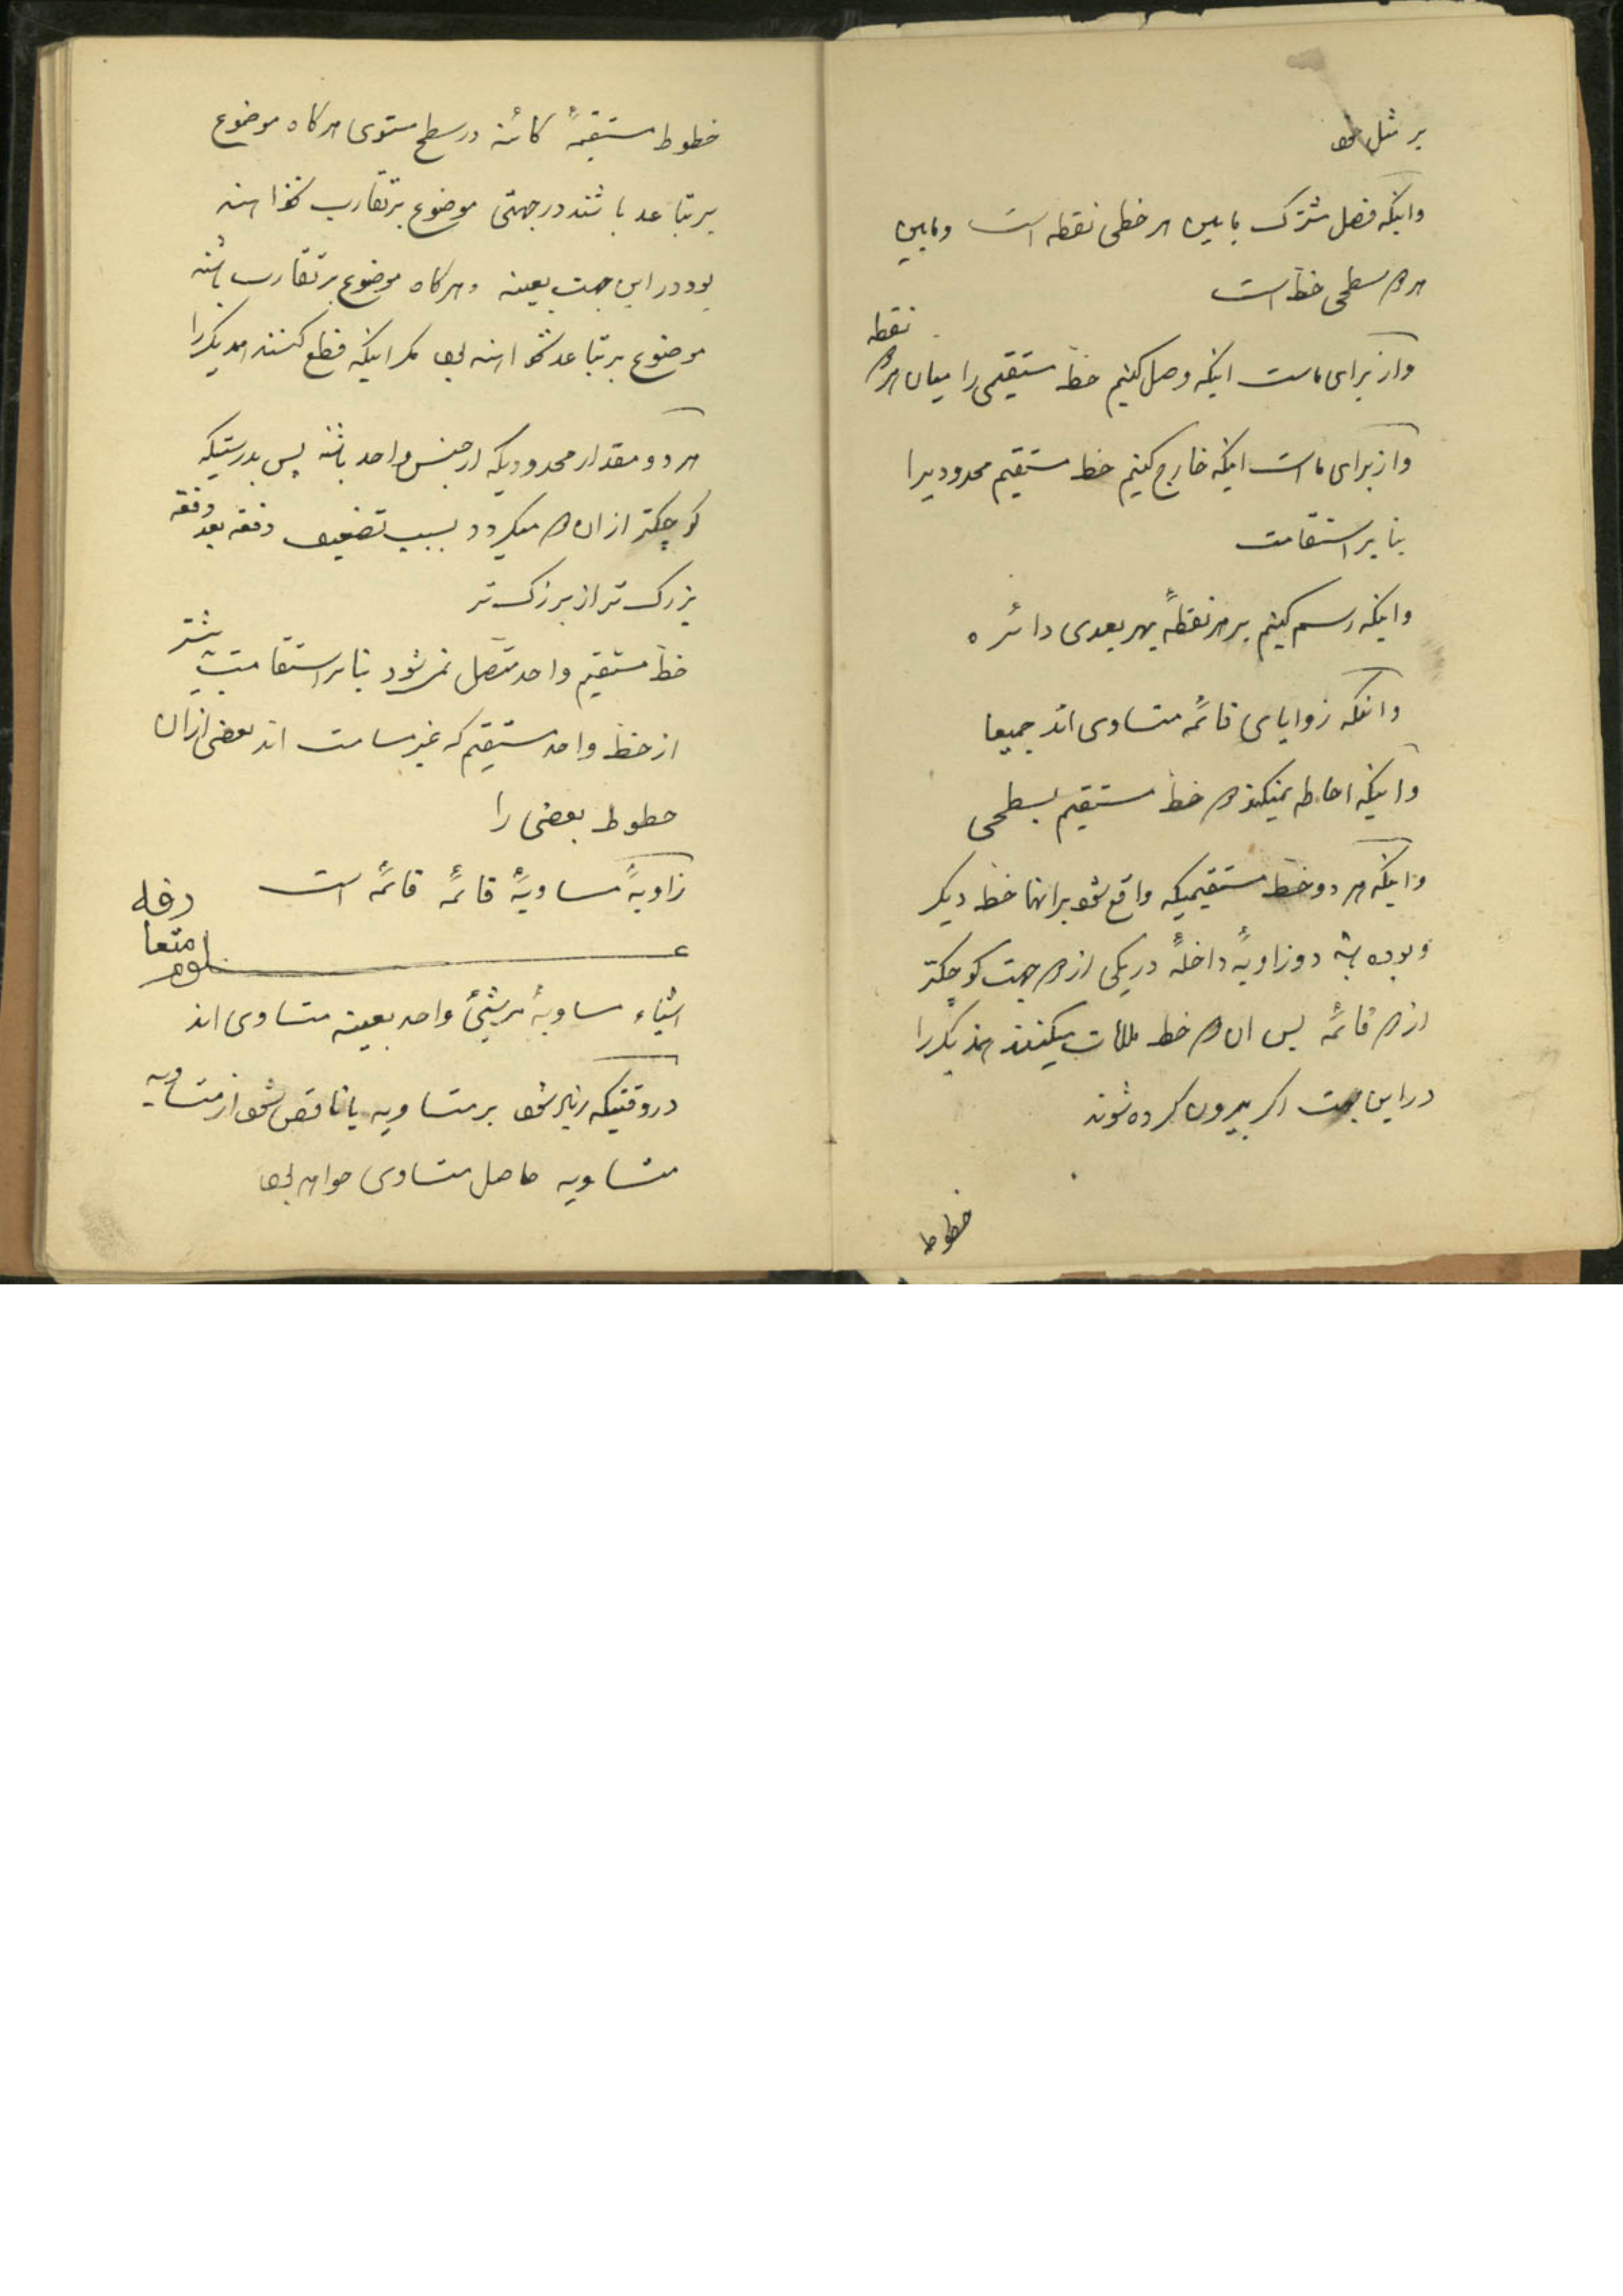 بر مثل خود
واینکه فصل مشترک مابین هر خطی نقطه است ومابین
هر دو سطحی خط است
نقطه
واز برای ماست اینکه وصل کنیم خط مستقیمی را میان هر دو
واز برای ماست اینکه خارج کنیم خط مستقیم محدودیرا
بنا بر استقامت
واینکه رسم کنیم بر هر نقطهٔ بهر بعدی دائره
واینکه زوایای قائمه متساوی اند جمیعا
واینکه احاطه نمیکند دو خط مستقیم بسطحی
واینکه هر دو خط مستقیمیکه واقع شود برانها خط دیکر
وبوده باشد دو زاویهٔ داخلهٔ در یکی از دو جهت کوچکتر
از دو قائمه پس ان دو خط ملاقات میکنند همدیکررا
در این جهت اکر بیرون کرده شوند
خطوط
خطوط مستقیمهٔ کائنه در سطح مستوی هرکاه موضوع
بر تباعد باشند در جهتی موضوع بر تقارب نخواهند
بود در این جهت بعینه وهرکاه موضوع بر تقارب باشند
موضوع بر تباعد نخواهند بود مکر اینکه قطع کنند همدیکررا
هر دو مقدار محدودیکه از جنس واحد باشند پس بدرستیکه
کوچکتر از ان دو میکردد بسبب تضعیف دفعه بعد دفعه
بزرک تر از بزرک تر
خط مستقیم واحد متصل نمیشود بنا بر استقامت بیشتر
از خط واحد مستقیم که غیر مسامت اند بعضی از ان
خطوط بعضی را
زاویهٔ مساویهٔ قائمهٔ قائمه است
اشیاء مساویهٔ هر شیئ واحد بعینه متساوی اند
در وقتیکه زیاد شود بر متساویه یا ناقص شود از متساویه
متساویه حاصل متساوی خواهد بود